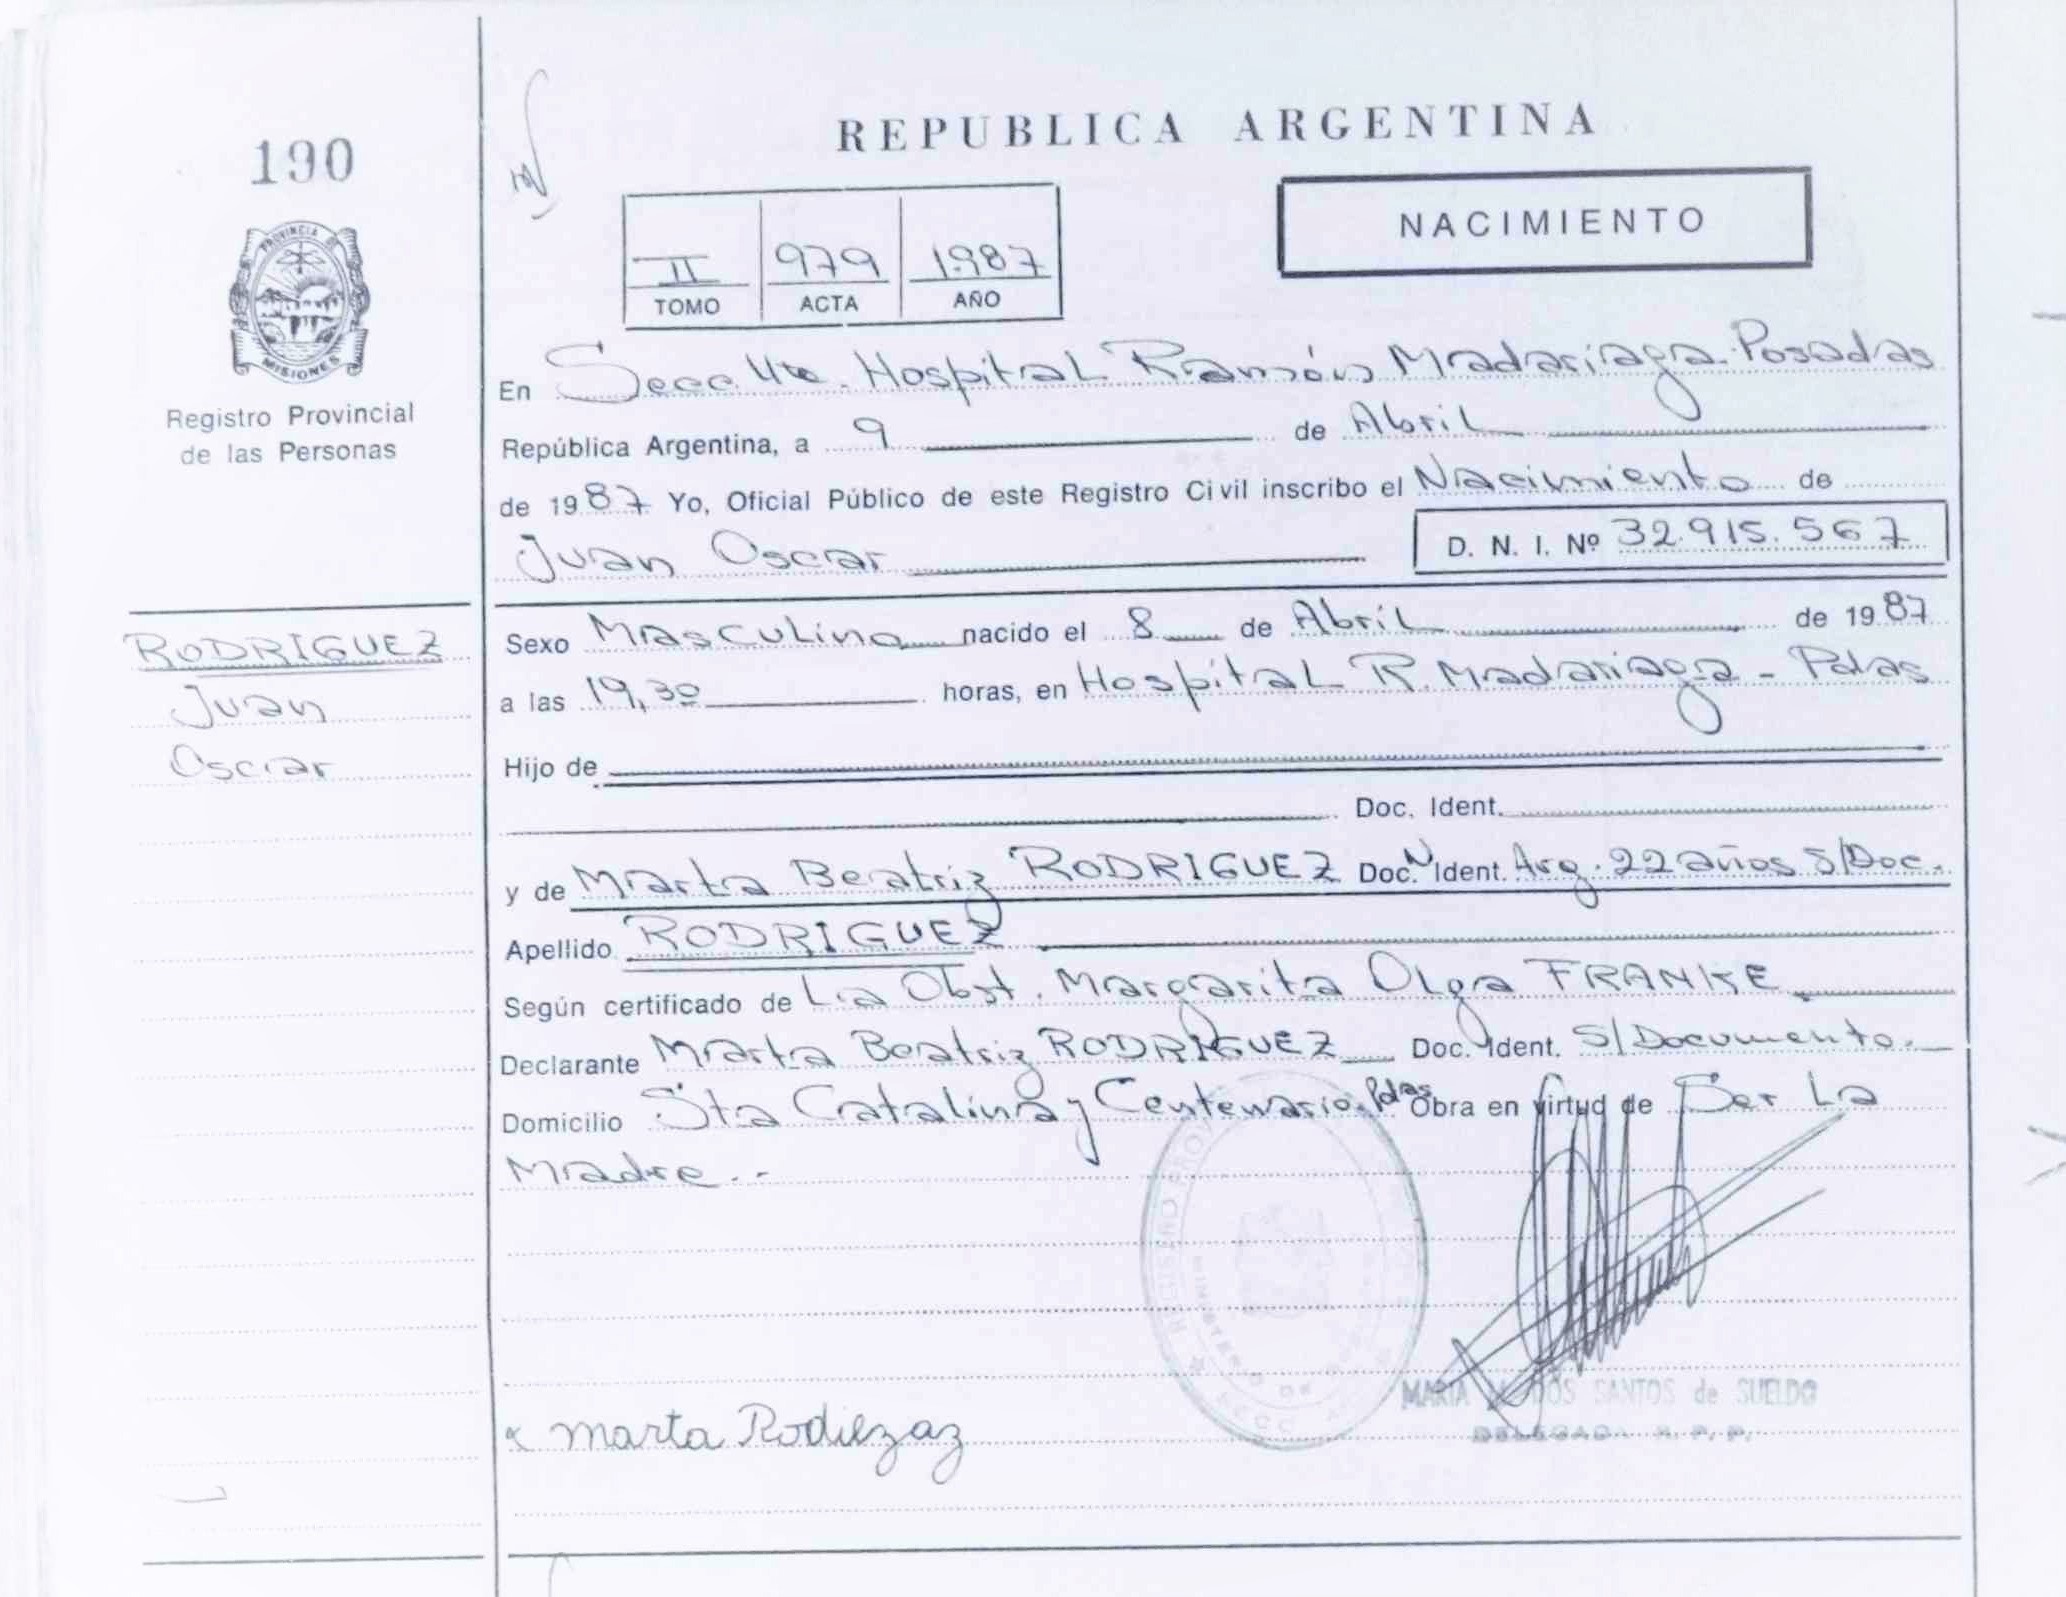 190
PROVINCIA DE
MISIONES
Registro Provincial
de las Personas
RODRIGUEZ
Juan
Oscar
REPUBLICA ARGENTINA
NACIMIENTO
II 979 1987
TOMO ACTA AÑO
En Secc 4ta. Hospital Ramón Madariaga. Posadas
República Argentina, a 9 de Abril
de 1987 Yo, Oficial Público de este Registro Civil inscribo el Nacimiento de
Juan Oscar D. N. I. Nº 32.915.567
Sexo Masculino nacido el 8 de Abril de 1987
a las 19,30 horas, en Hospital R. Madariaga - Pdas
Hijo de
Doc. Ident.
y de Marta Beatriz RODRIGUEZ Doc. N Ident. Arg. 22 años S/Doc.
Apellido RODRIGUEZ
Según certificado de La Obst. Margarita Olga FRANKE
Declarante Marta Beatriz RODRIGUEZ Doc. Ident. S/Documento.
Domicilio Sta Catalina y Centenario. Pdas Obra en virtud de Ser La
Madre.-
REGISTRO
MINISTERIO DE
MARIA DOS SANTOS de SUELDO
DELEGADA R. P. P.
x marta Rodiezaz